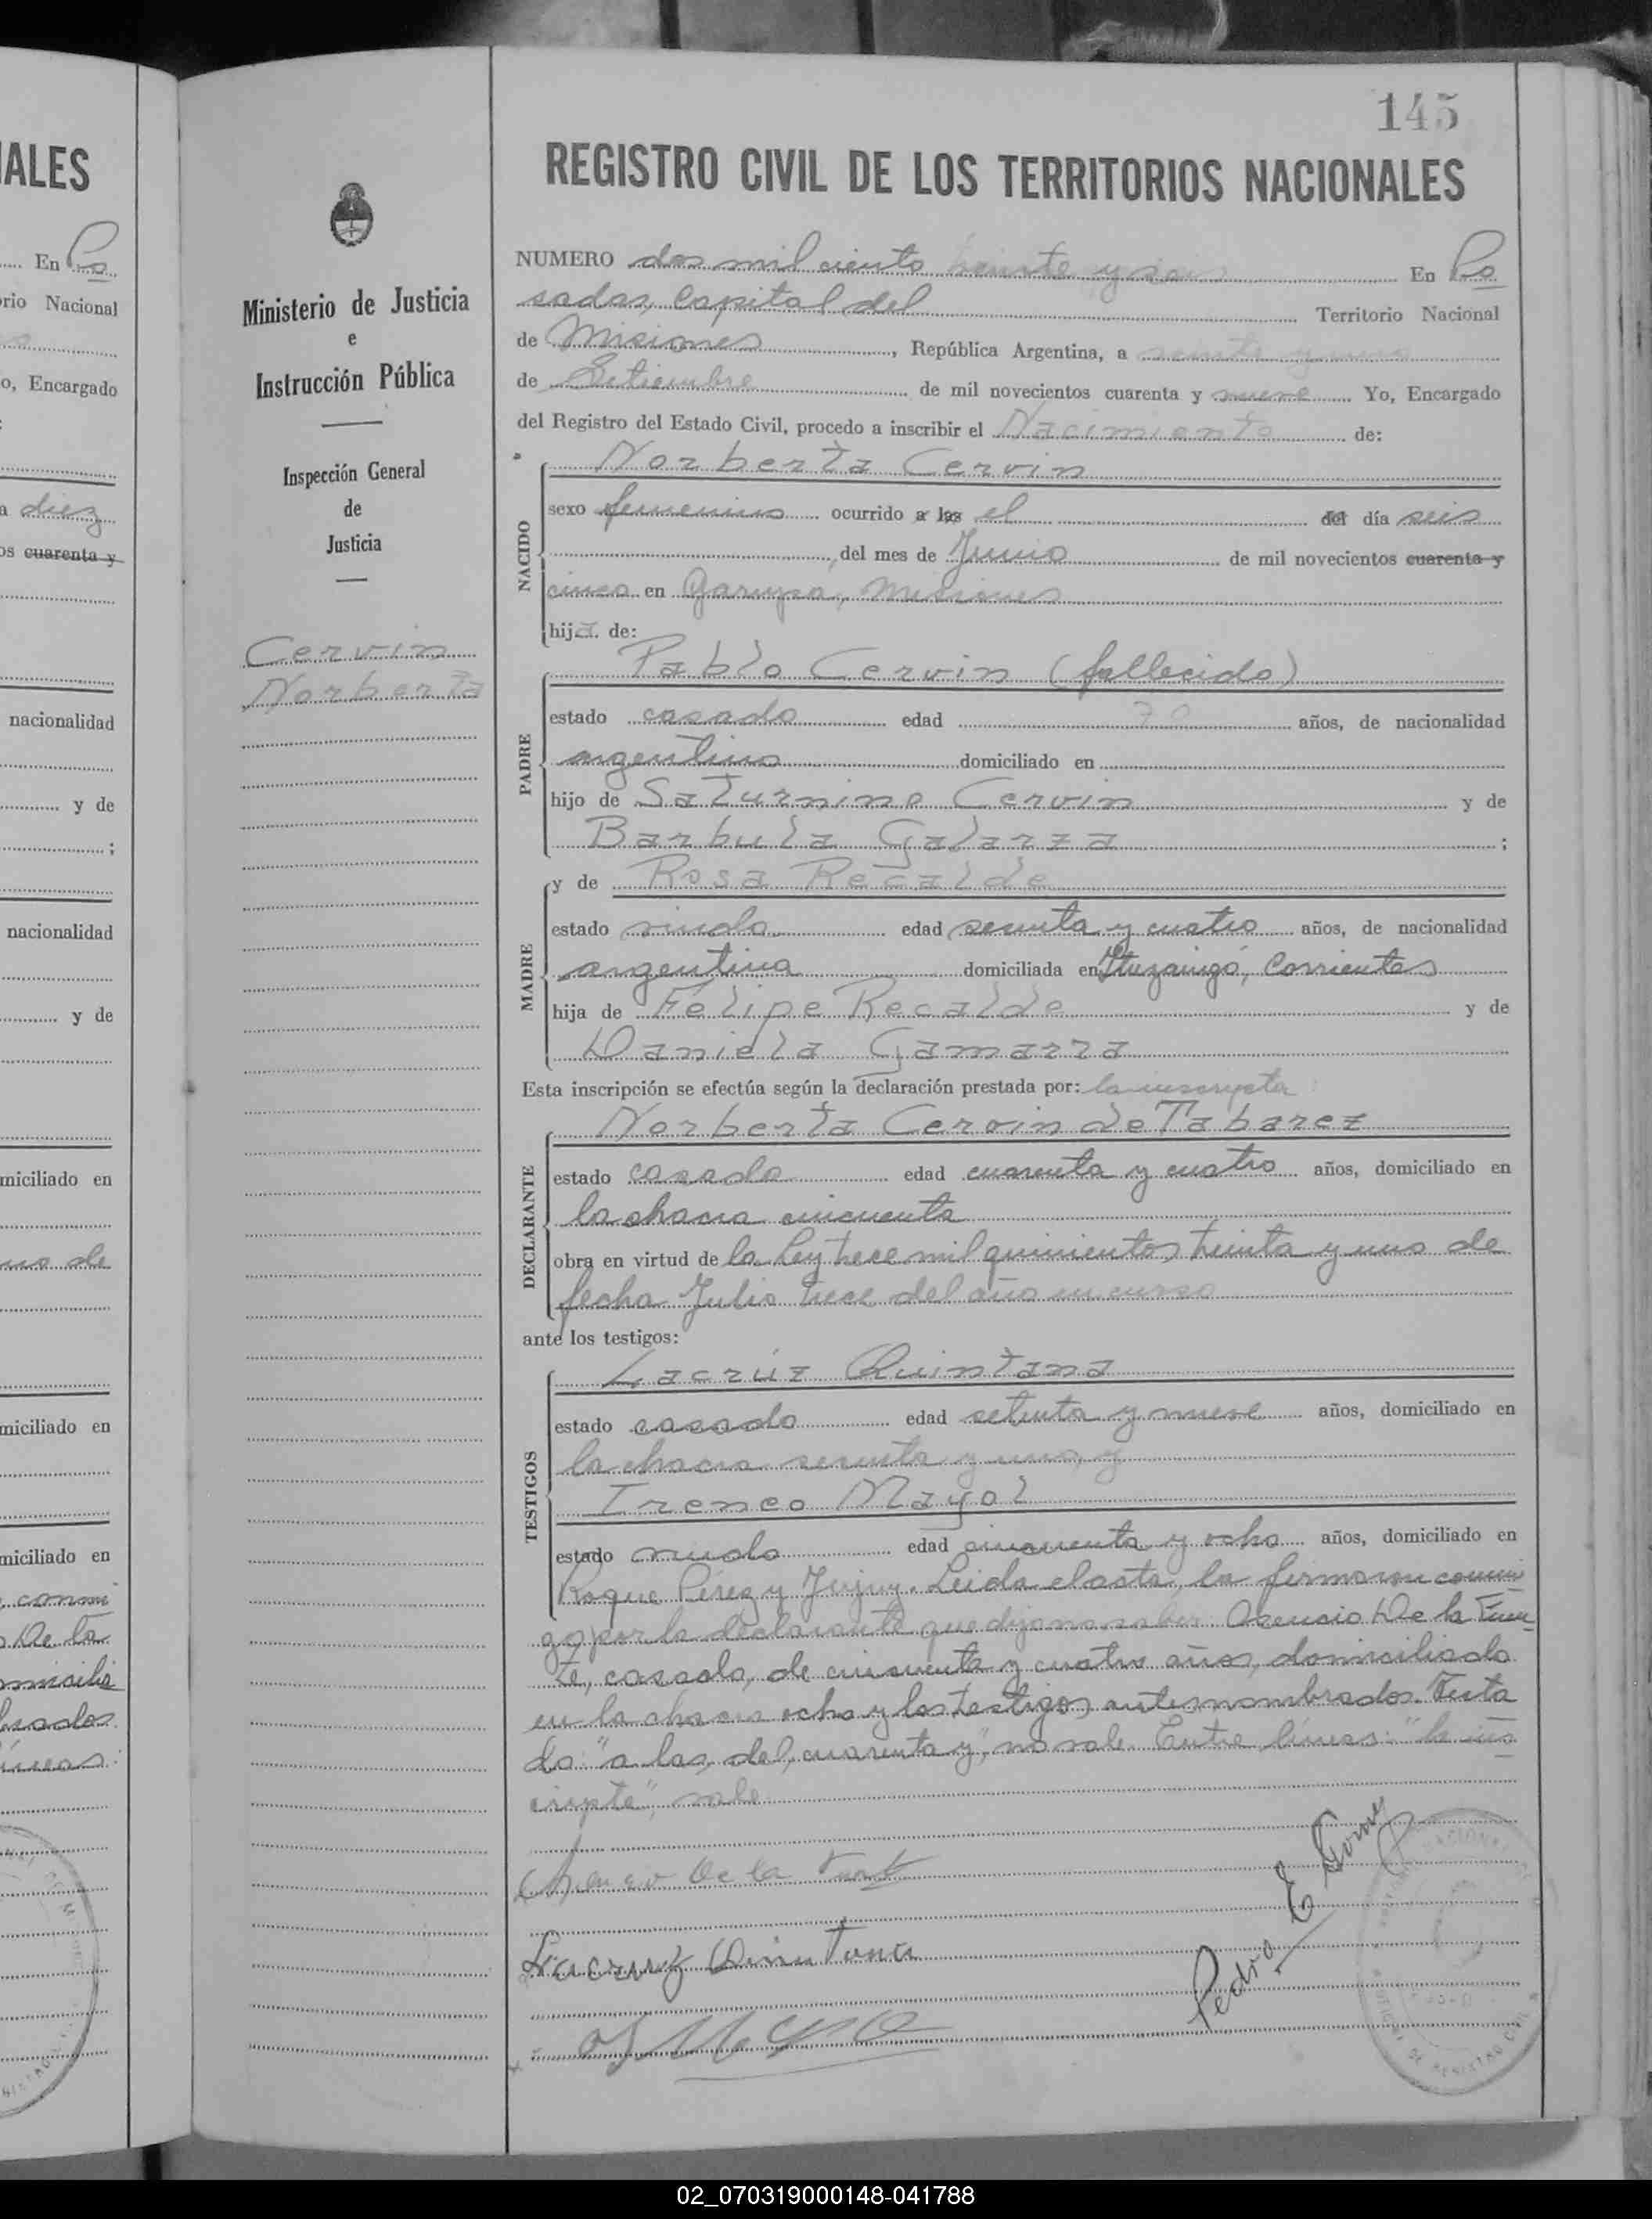 IALES
En Po
rio Nacional
o, Encargado
a diez
os cuarenta y
nacionalidad
y de
;
nacionalidad
y de
miciliado en
uno de
miciliado en
miciliado en
conmi
De la
omicilia
brados.
líneas:
Ministerio de Justicia
e
Instrucción Pública
Inspección General
de
Justicia
Cervin
Norberta
145
REGISTRO CIVIL DE LOS TERRITORIOS NACIONALES
NUMERO dos mil ciento veinte y seis En Po
sadas, Capital del Territorio Nacional
de Misiones, República Argentina, a veinte y uno
de Setiembre de mil novecientos cuarenta y nueve Yo, Encargado
del Registro del Estado Civil, procedo a inscribir el Nacimiento de:
Norberta Cervin
NACIDO
sexo femenino ocurrido a las el del día seis
del mes de Junio de mil novecientos cuarenta y
cinco en Garupá, Misiones
hija de:
Pablo Cervin (fallecido)
PADRE
estado casado edad 70 años, de nacionalidad
argentino domiciliado en
hijo de Saturnino Cervin y de
Barbula Galarza ;
y de Rosa Recalde
MADRE
estado viuda edad sesenta y cuatro años, de nacionalidad
argentina domiciliada en Ituzaingó, Corrientes
hija de Felipe Recalde y de
Daniela Gamarra
Esta inscripción se efectúa según la declaración prestada por: la inscripta
Norberta Cervin de Tabarez
DECLARANTE
estado casada edad cuarenta y cuatro años, domiciliado en
la chacra cincuenta
obra en virtud de la Ley trece mil quinientos treinta y uno de
fecha Julio trece del año en curso
ante los testigos:
Lacrúz Quintana
TESTIGOS
estado casado edad setenta y nueve años, domiciliado en
la chacra sesenta y uno, y
Ireneo Mayol
estado viudo edad cincuenta y ocho años, domiciliado en
Roque Pérez y Jujuy. Leida el acta, la firmaron conmi
go por la declarante que dijo no saber Asencio De la Fuen
te, casado, de cincuenta y cuatro años, domiciliado
en la chacra ocho y los testigos antenombrados. Testa
do: "a las, del, cuarenta y", no vale. Entre líneas: "la ins
cripta", vale
De la Fuente
Lacruz Quintana
Pedro E. Gomez
02_070319000148-041788